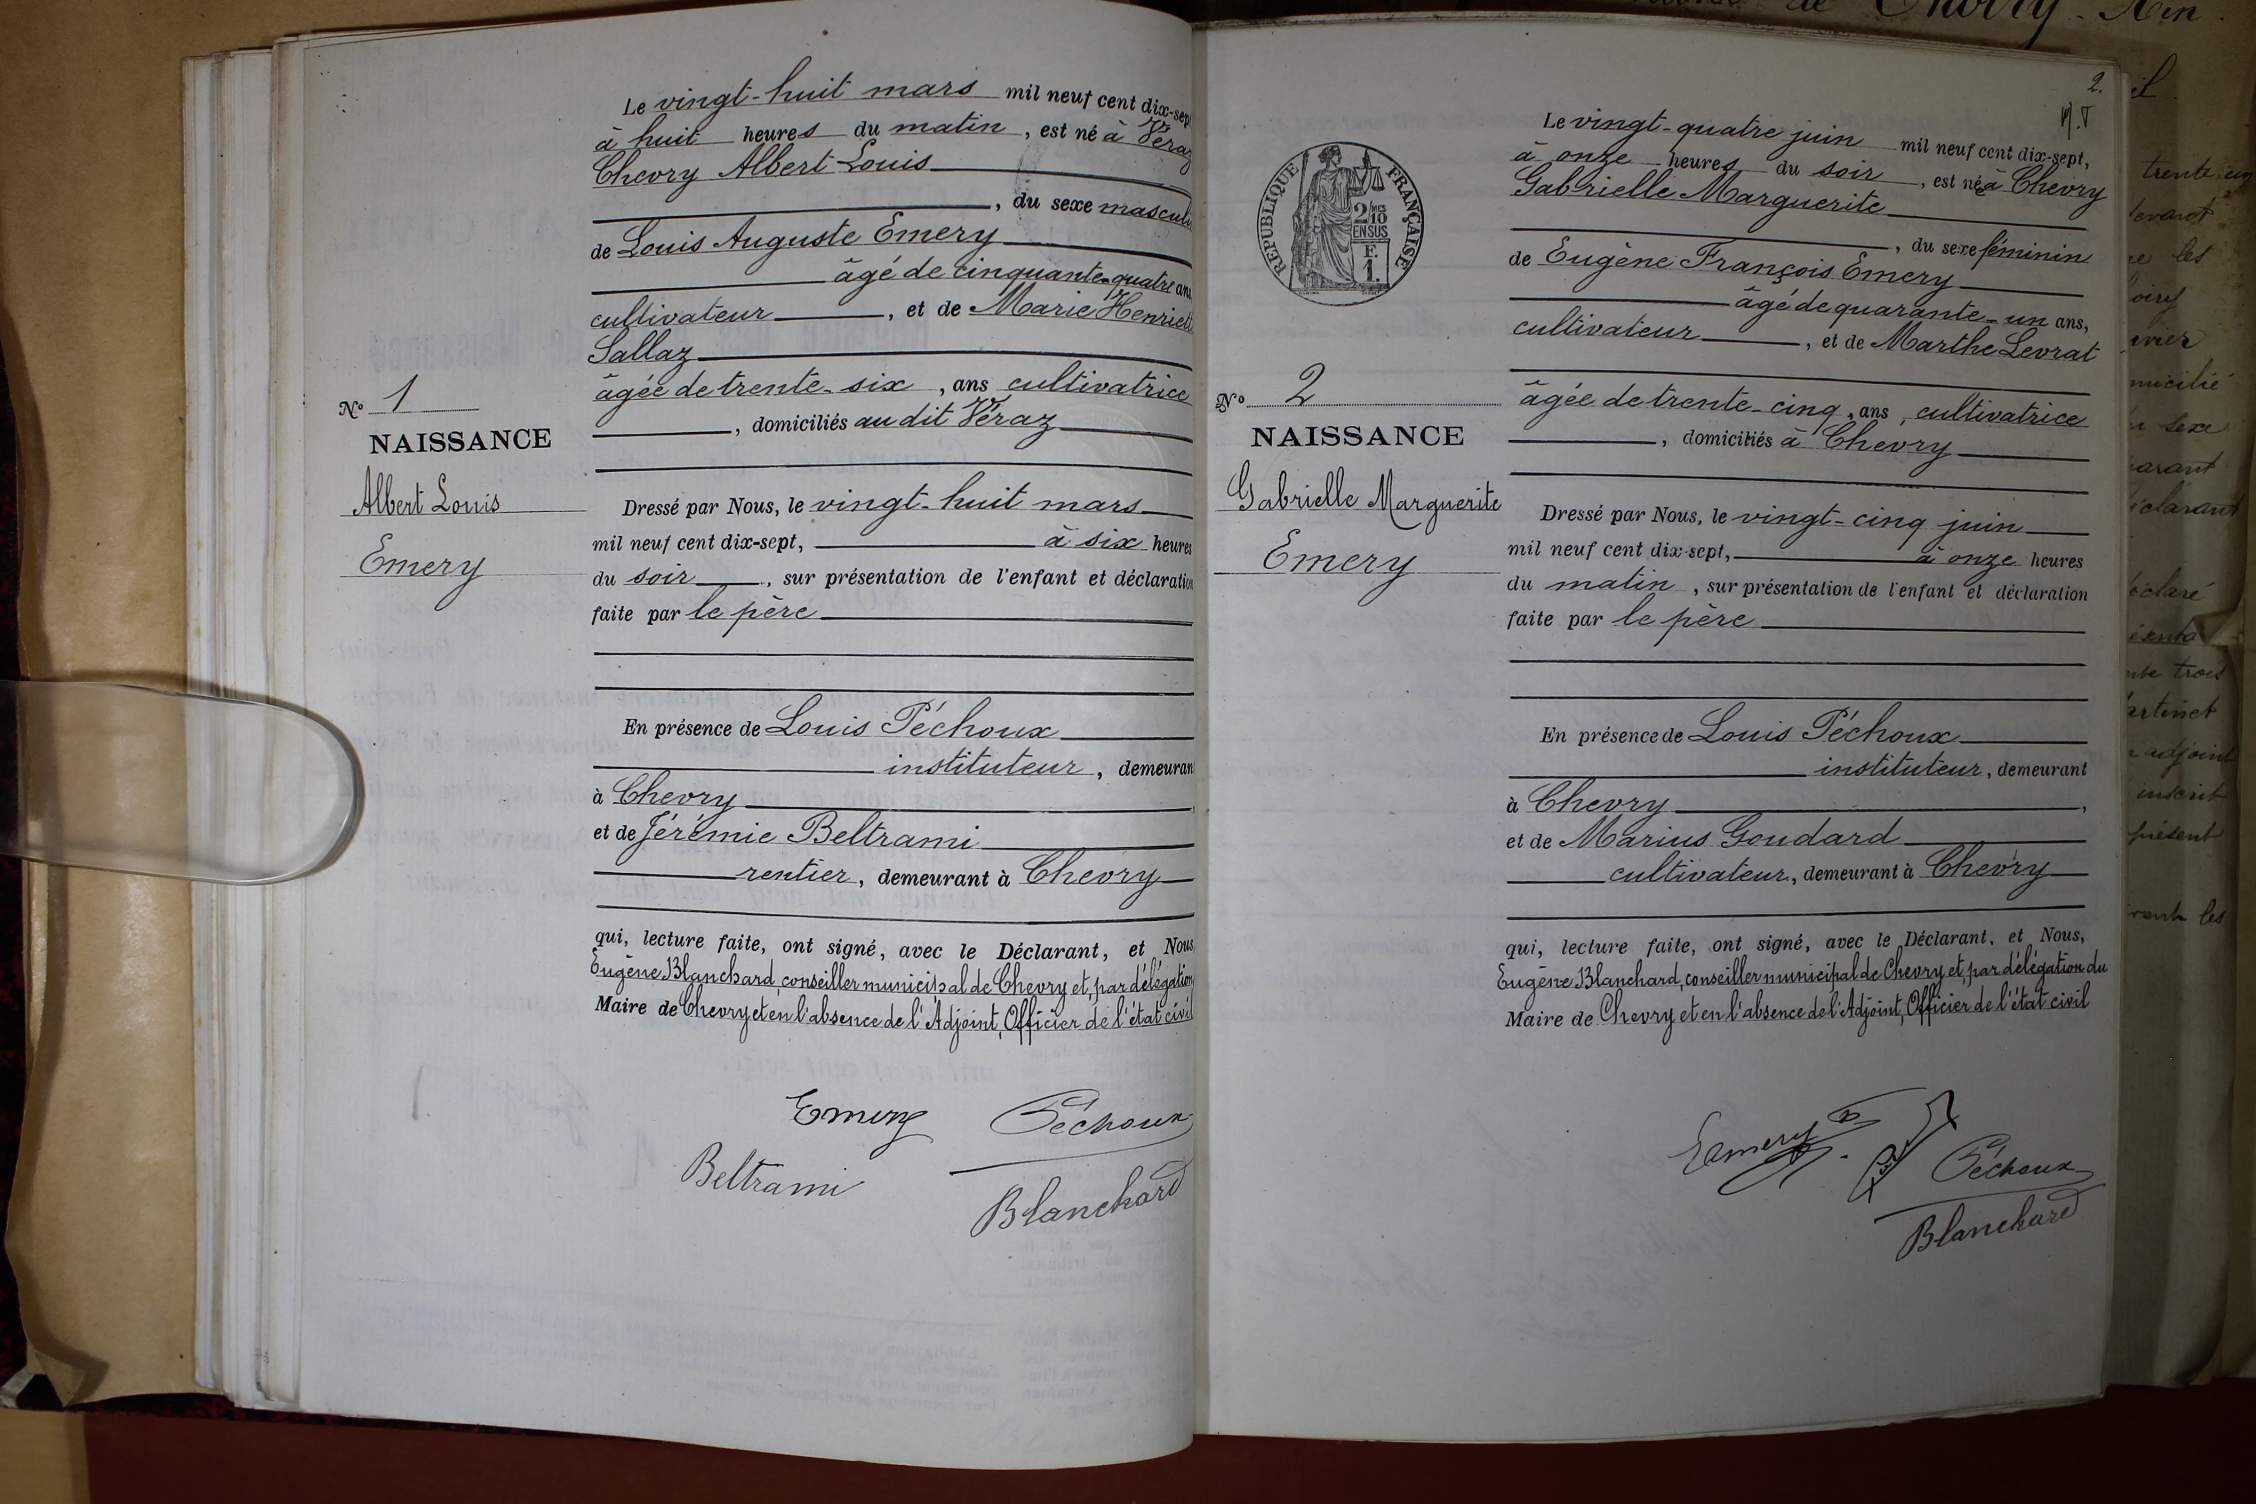 Le vingt-huit mars mil neuf cent dix-sept
à huit heures du matin, est né à Véraz
Chevry Albert Louis
, du sexe masculi
de Louis Auguste Emery
âgé de cinquante-quatre ans,
cultivateur, et de Marie Henriett
Sallaz
âgée de trente-six, ans cultivatrice
, domiciliés au dit Véraz
Nº 1
NAISSANCE
Albert Louis
Emery
Dressé par Nous, le vingt-huit mars
mil neuf cent dix-sept, à six heures
du soir, sur présentation de l'enfant et déclaration
faite par le père
En présence de Louis Péchoux
instituteur, demeuran
à Chevry,
et de Jérémie Beltrami
rentier, demeurant à Chevry
qui, lecture faite, ont signé, avec le Déclarant, et Nous,
Eugène Blanchard, conseiller municipal de Chevry et, par délégation
Maire de Chevry et en l'absence de l'Adjoint, Officier de l'état civil
Emery Péchoux
Beltrami
Blanchard
2.
Le vingt-quatre juin mil neuf cent dix-sept,
à onze heures du soir, est née à Chevry
Gabrielle Marguerite
, du sexe féminin
de Eugène François Emery
âgé de quarante-un ans,
cultivateur, et de Marthe Levrat
âgée de trente-cinq, ans, cultivatrice
, domiciliés à Chevry
REPUBLIQUE FRANÇAISE
2 MES
10
EN SUS
F.
1.
Nº 2
NAISSANCE
Gabrielle Marguerite
Emery
Dressé par Nous, le vingt-cinq juin
mil neuf cent dix-sept, à onze heures
du matin, sur présentation de l'enfant et déclaration
faite par le père
En présence de Louis Péchoux
instituteur, demeurant
à Chevry,
et de Marius Goudard
cultivateur, demeurant à Chevry
qui, lecture faite, ont signé, avec le Déclarant, et Nous,
Eugène Blanchard, conseiller municipal de Chevry et, par délégation du
Maire de Chevry et en l'absence de l'Adjoint, Officier de l'état civil
Emery
Péchoux
Blanchard
de Chevry. Ain.
trente un
devant
les
micilié
sexe
déclarant
déclaré
trois
adjoint
inscrit
présent
les